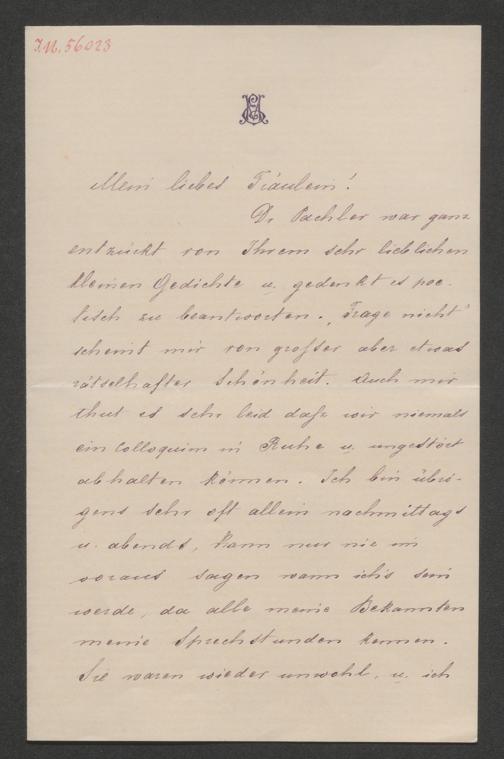 I.N. 56023
Mein liebes Fräulein!
Dr Pachler war ganz
entzückt von Ihrem sehr lieblichen
kleinen Gedichte u. gedenkt es poe-
tisch zu beantworten. „Frage nicht“
scheint mir von großer aber etwas
rätselhafter Schönheit. Auch mir
thut es sehr leid daß wir niemals
ein Colloquim in Ruhe u. ungestört
abhalten können. Ich bin übri-
gens sehr oft allein nachmittags
u. abends, kann nur nie im
voraus sagen wann ichs sein
werde, da alle meine Bekannten
meine Sprechstunden kennen.
Sie waren wieder unwohl, u. ich